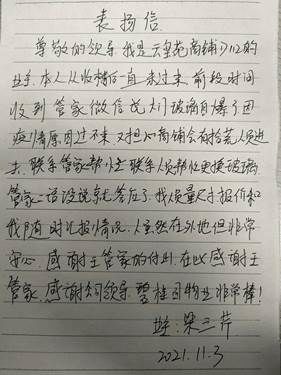 表扬信
尊敬的领导，我是天玺苑商铺112的
业主。本人从收楼后一直未过来，前段时间
收到管家微信说大门玻璃自爆了因
疫情原因过不来，又担心商铺会有拾荒人员进
去，联系管家帮忙联系人员帮忙更换玻璃
管家二话没说就答应了，找质量尺寸报价和
我随时汇报情况，虽然在外地但非常
安心，感谢王管家的付出，在此感谢王
管家，感谢公司领导，碧桂园物业非常棒！
业主：梁三芹
2021.11.3